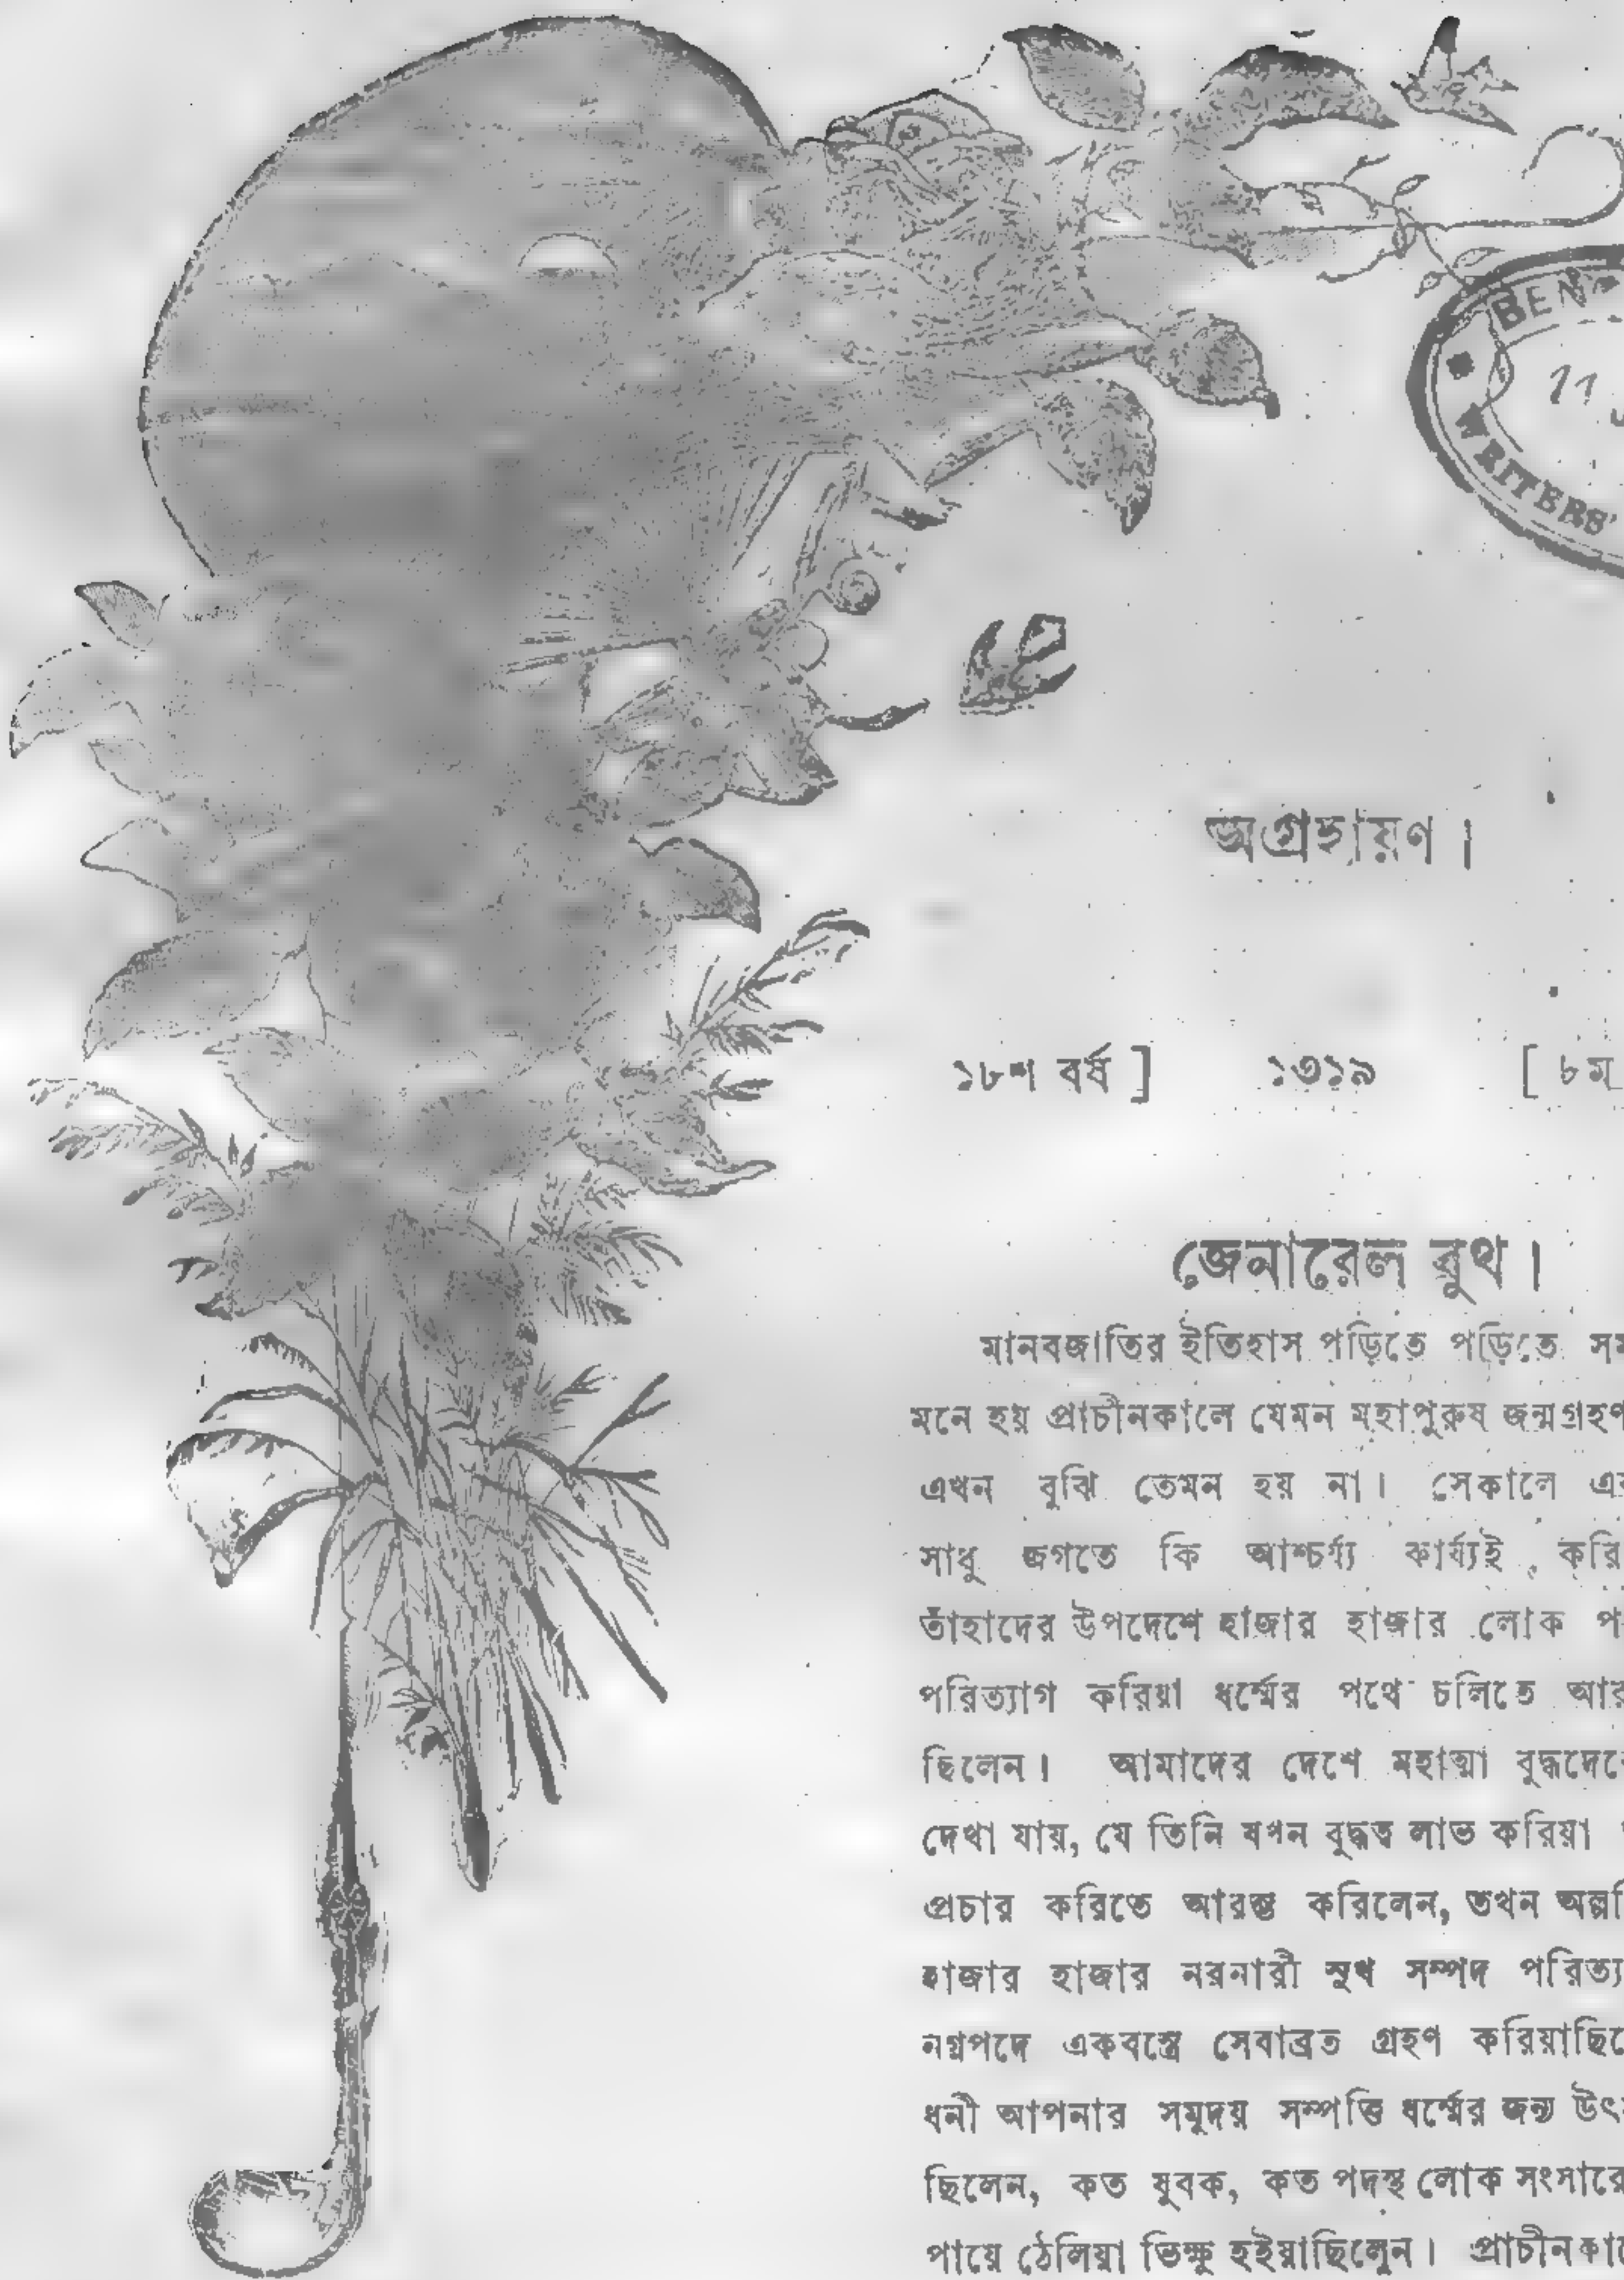 BEN
11
WRITERS'
অগ্রহায়ণ।
১৮শ বর্ষ ] ১৩১৯ [ ৮ম
জেনারেল বুথ।
মানবজাতির ইতিহাস পড়িতে পড়িতে
মনে হয় প্রাচীনকালে যেমন মহাপুরুষ জন্মগ্রহণ
এখন বুঝি তেমন হয় না। সেকালে
সাধু জগতে কি আশ্চর্য্য কার্য্যই করি
তাঁহাদের উপদেশে হাজার হাজার লোক
পরিত্যাগ করিয়া ধর্ম্মের পথে চলিতে আর
ছিলেন। আমাদের দেশে মহাত্মা বুদ্ধদেবে
দেখা যায়, যে তিনি যখন বুদ্ধত্ব লাভ করিয়া
প্রচার করিতে আরম্ভ করিলেন, তখন অল্পদি
হাজার হাজার নরনারী সুখ সম্পদ পরিত্যা
নগ্নপদে একবস্ত্রে সেবাব্রত গ্রহণ করিয়াছিলে
ধনী আপনার সমুদয় সম্পত্তি ধর্ম্মের জন্য উৎস
ছিলেন, কত যুবক, কত পদস্থ লোক সংসারে
পায়ে ঠেলিয়া ভিক্ষু হইয়াছিলেন। প্রাচীনকালে